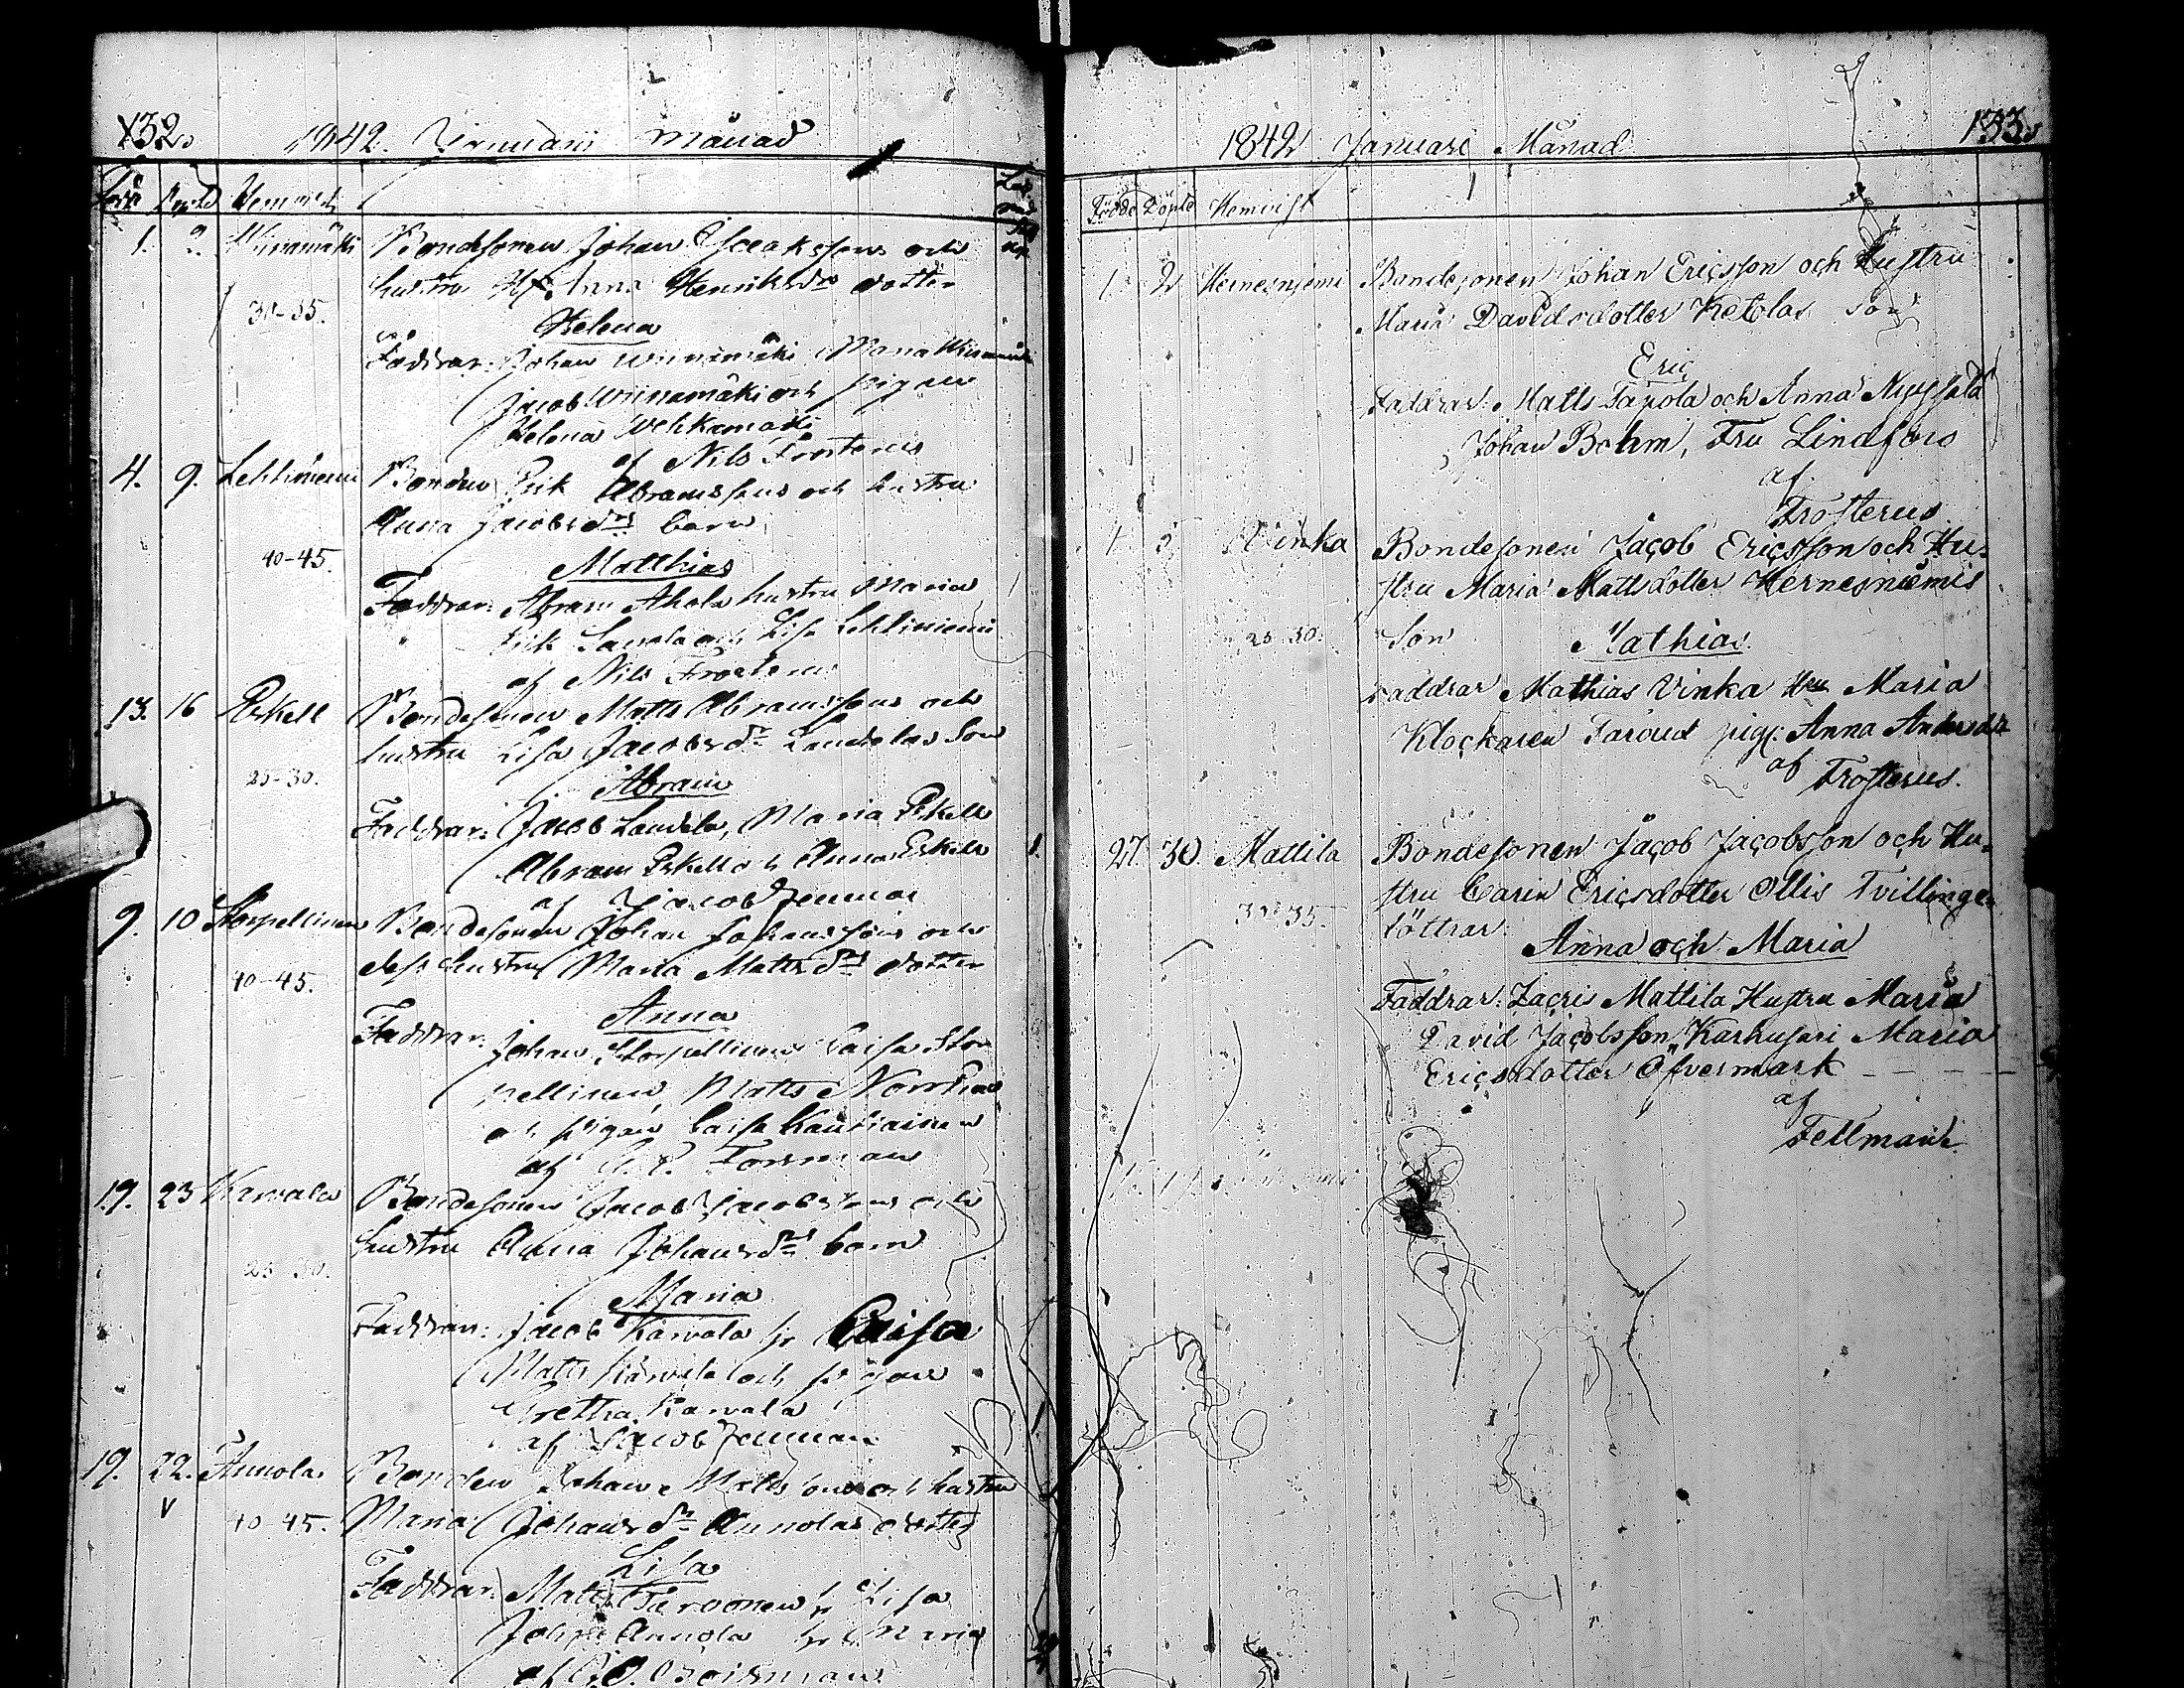 132.
1842. Januari månad
Född Döpld Hemvist
1. 2. Wiinamäki Bondesonen Johan Isaakssons och
hustru Anna Henriksdrs dotter
30-35.
Helena
Faddrar: Johan Wiinamäki, Maria Wiinamäki
Jacob Wiinamäki och pigan
Helena Wehkamäki
af Nils Frosterus
4. 9. Lehtiniemi Bonden Erik Abramssons och hustru
Anna Jacobsdrs barn
40-45.
Matthias
Faddrar: Abram Ahola hustru Maria
Erik och Lisa Lehtiniemi
af Nils Frosterus
13. 16 Eskell Bondesonen Matts Abramssons och
hustru Lisa Jacobsdr Laudalas Son
25-30.
Abram
Faddrar: Jacob Laudela, Maria Eskell
Abram Eskell och Anna Eskell
af Jacob
9. 10 Storpellinen Bondesonen Johan Johanssons och
dess hustru Maria Mattsdrs dotter
40-45.
Anna
Faddrar: Johan Storpellinen Caisa Stor
pellinen, Matts
och pigan Caisa Kautiainen
af Forsman
19. 23 Karvala Bondesonen Jacob Jacobssons och
hustru Anna Johansdrs barn
25-30.
Maria
Faddrar: Jacob Karvala hr Caisa
Matts Karvala och pigan
Gretha Karvala
af Jacob
19. 22. Annola Bonden Johan Matssons och hustru
Maria Johansdr Annolas dotter
40-45.
Lisa
Faddrar: Matts hr Lisa
Annola hr Maria
af
133.
1842 Januari Månad
Födde Döpte Hemvist
1. 2 Hernesniemi Bondesonen Johan Ericsson och Hustru
Maria Davidsdotter Ketolas Son
Eric
Faddrar: Matts Tapola och Anna
Johan Bohm, Fru Lindfors
af
Frosterus
4. 5 Vinka Bondesonen Jacob Ericsson och Hu-
stru Maria Mattsdotter Hernesniemis
25-30. Son
Mathias.
Faddrar Mathias Vinka Hru Maria
Klockaren Faroud pig: Anna Andersdtr
af Frosterus.
27. 30. Mattila Bondesonen Jacob Jacobsson och Hu-
stru Carin Ericsdotter Ollis Tvillinge-
30-35. döttrar:
Anna och Maria
Faddrar: Zacris Mattila Hustru Maria
David Jacobsson Karhusari Maria
Ericsdotter Öfvermark
af
Fellman.